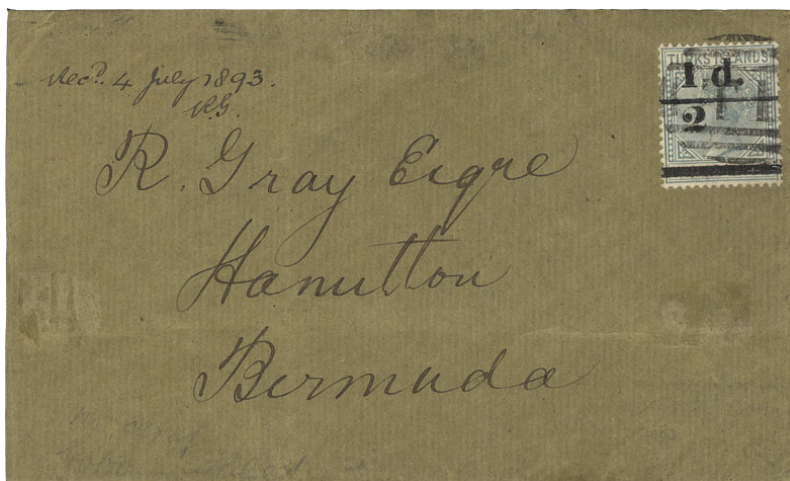 Recd. 4 July 1893.
R.G.
TURKS ISLANDS
1 d.
2
R. Gray Esqre
Hamilton
Bermuda